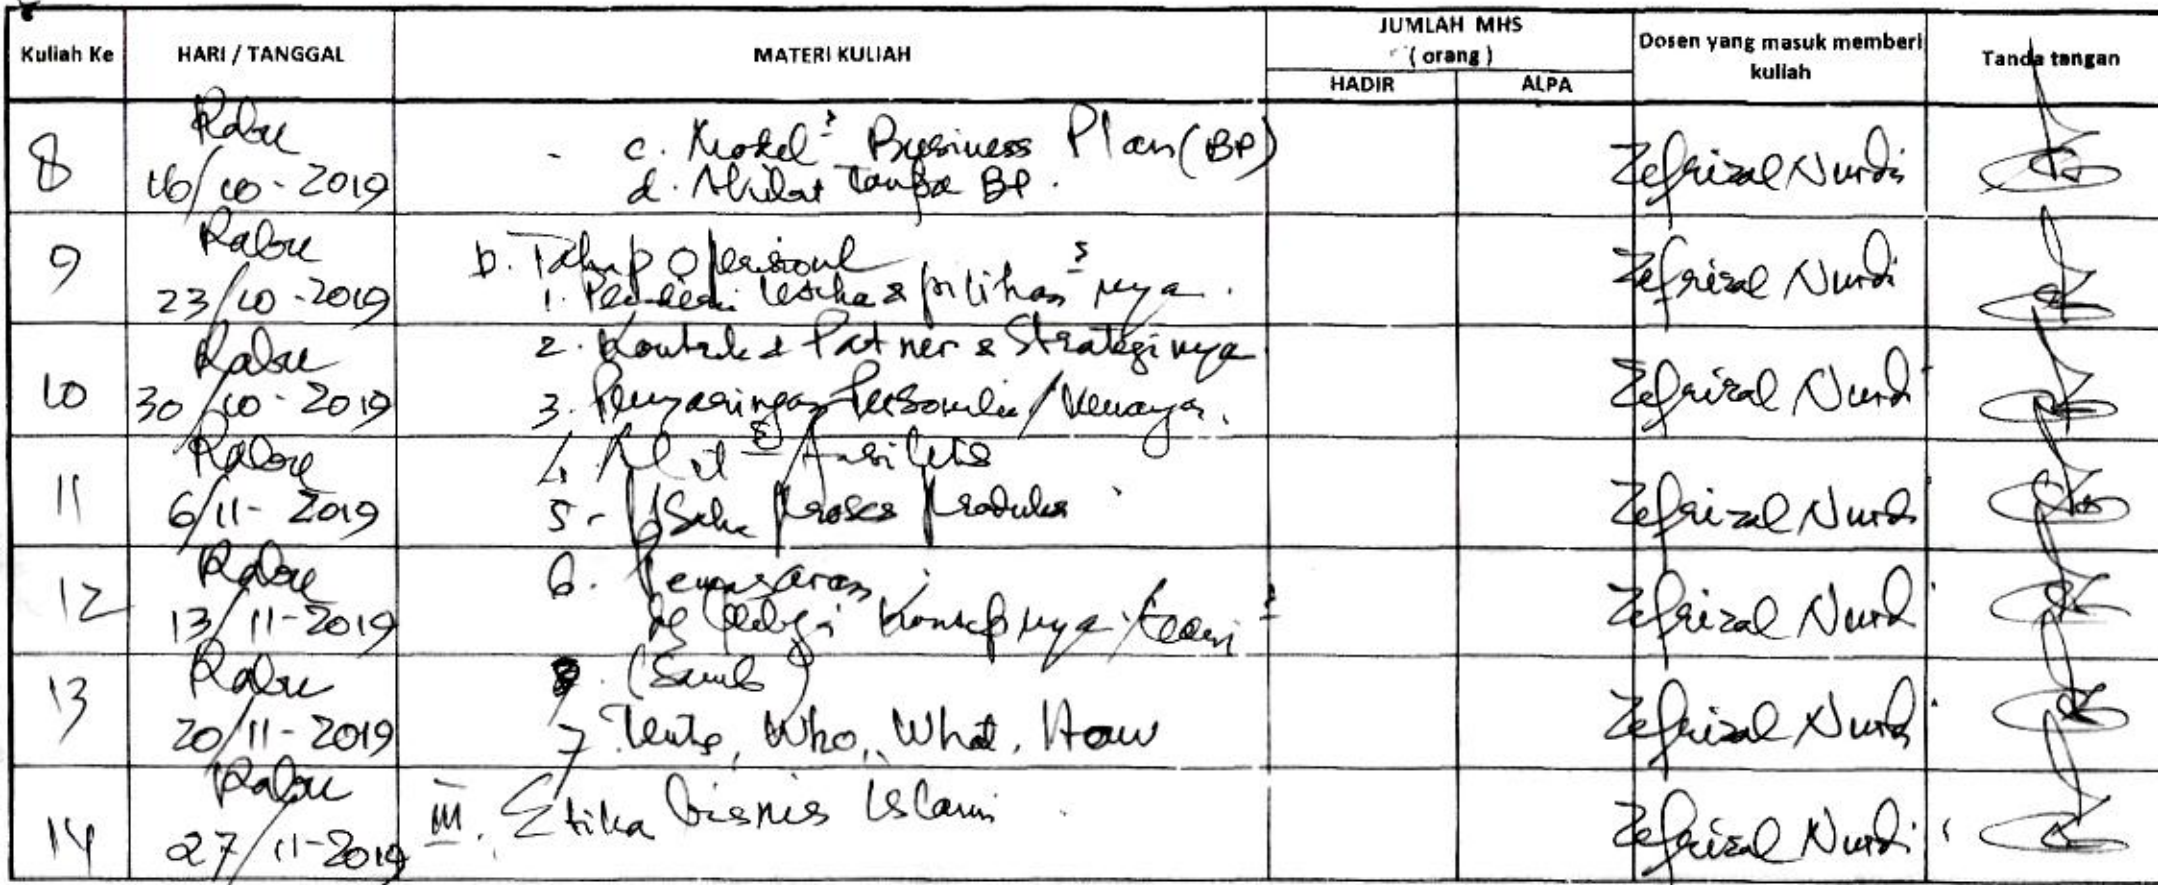 Kuliah Ke HARI / TANGGAL MATERI KULIAH JUMLAH MHS ( orang ) HADIR ALPA Dosen yang masuk memberi kuliah Tanda tangan
8 Rabu 16/10-2019
c. Model² Business Plan (BP)
d. Akibat tanpa BP.
Zefrizal Nurdi
9 Rabu 23/10-2019
b. Tahap Operisional
1. usaha & pilihan² nya.
Zefrizal Nurdi
10 Rabu 30/10-2019
2. Kontrak & Patner & Strateginya
3. Penyaringan
Zefrizal Nurdi
11 Rabu 6/11-2019
4. Alat² Fasilitas
5. Proses Produksi
Zefrizal Nurdi
12 Rabu 13/11-2019
6. Pemasaran
dg konsepnya
Zefrizal Nurdi
13 Rabu 20/11-2019
(Samb)
7 Who, What, How
Zefrizal Nurdi
14 Rabu 27/11-2019
III. Etika bisnis Islami
Zefrizal Nurdi